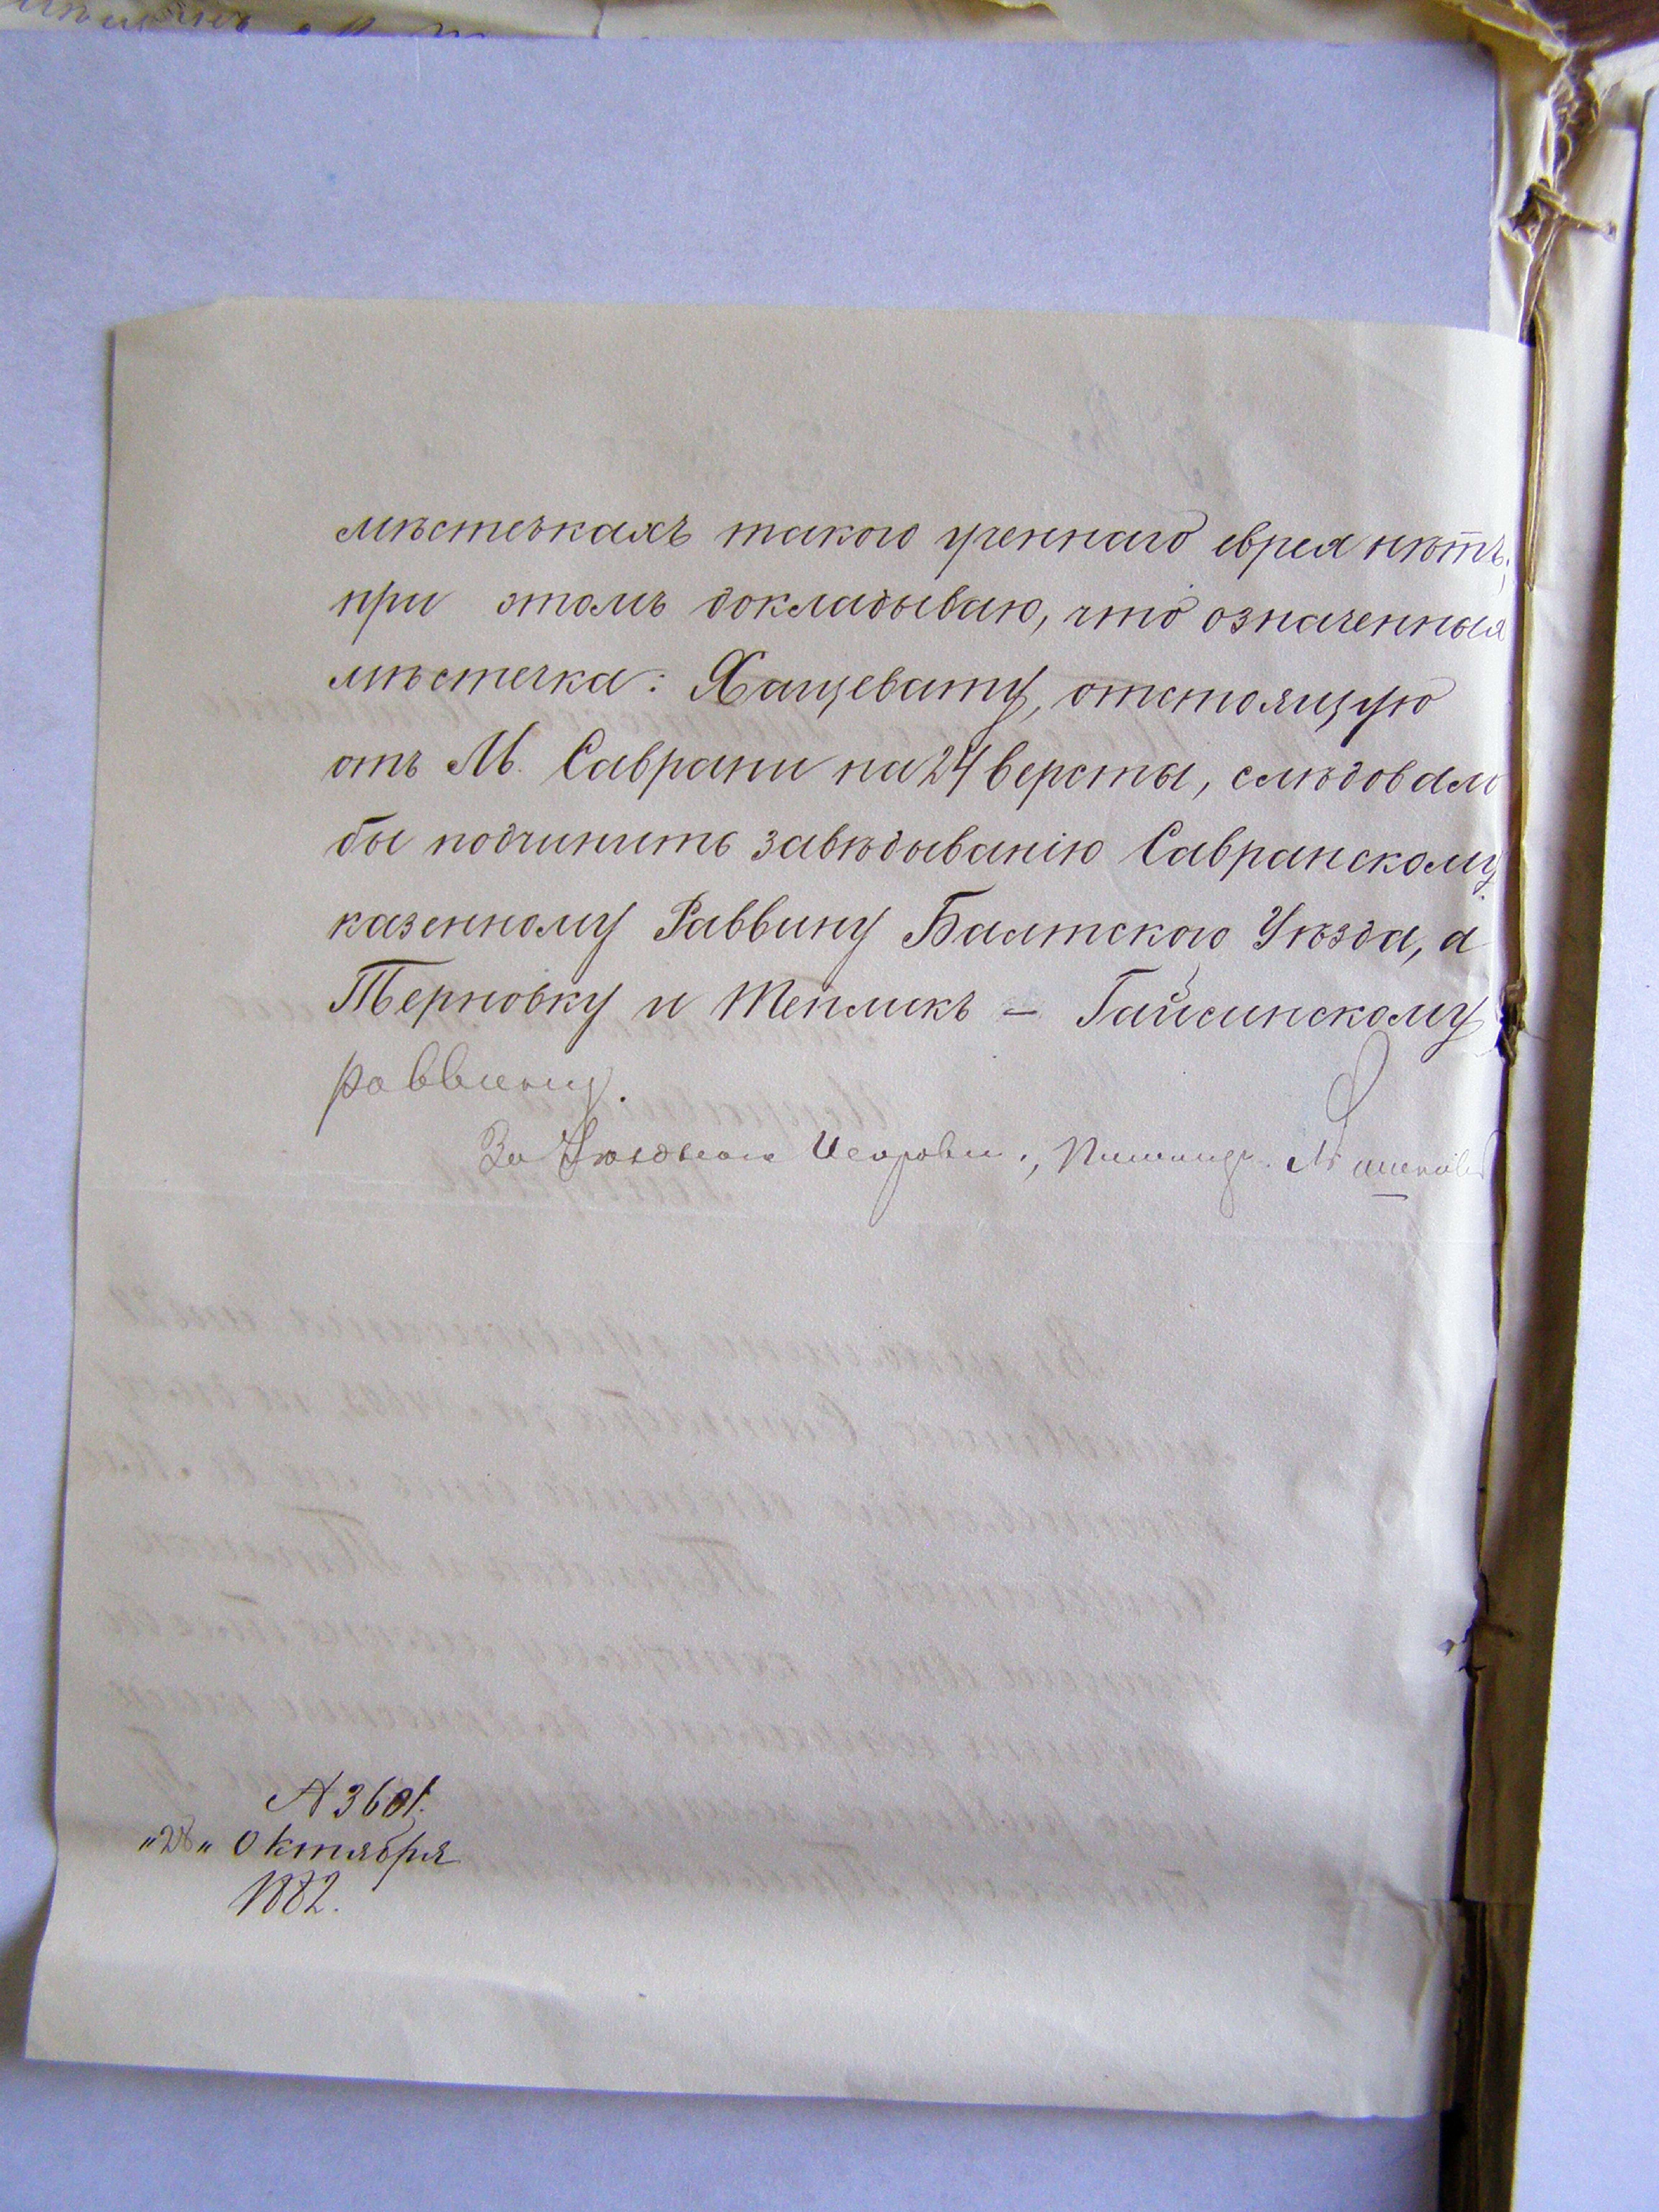 мѣстечкахъ такого ученнаго еврея нѣтъ;
при этомъ докладываю, что означенныя
мѣстечка: Хащевату, отстоящую
отъ М. Саврани на 24 версты, слѣдовало
бы подчинить завѣдыванію Савранскому
казенному Раввину Балтскаго Уѣзда, а
Терновку и Тепликъ – Гайсинскому
раввину.
За Уѣзднаго Исправн., Помощн.
№ 3601.
"28" Октября
1882.